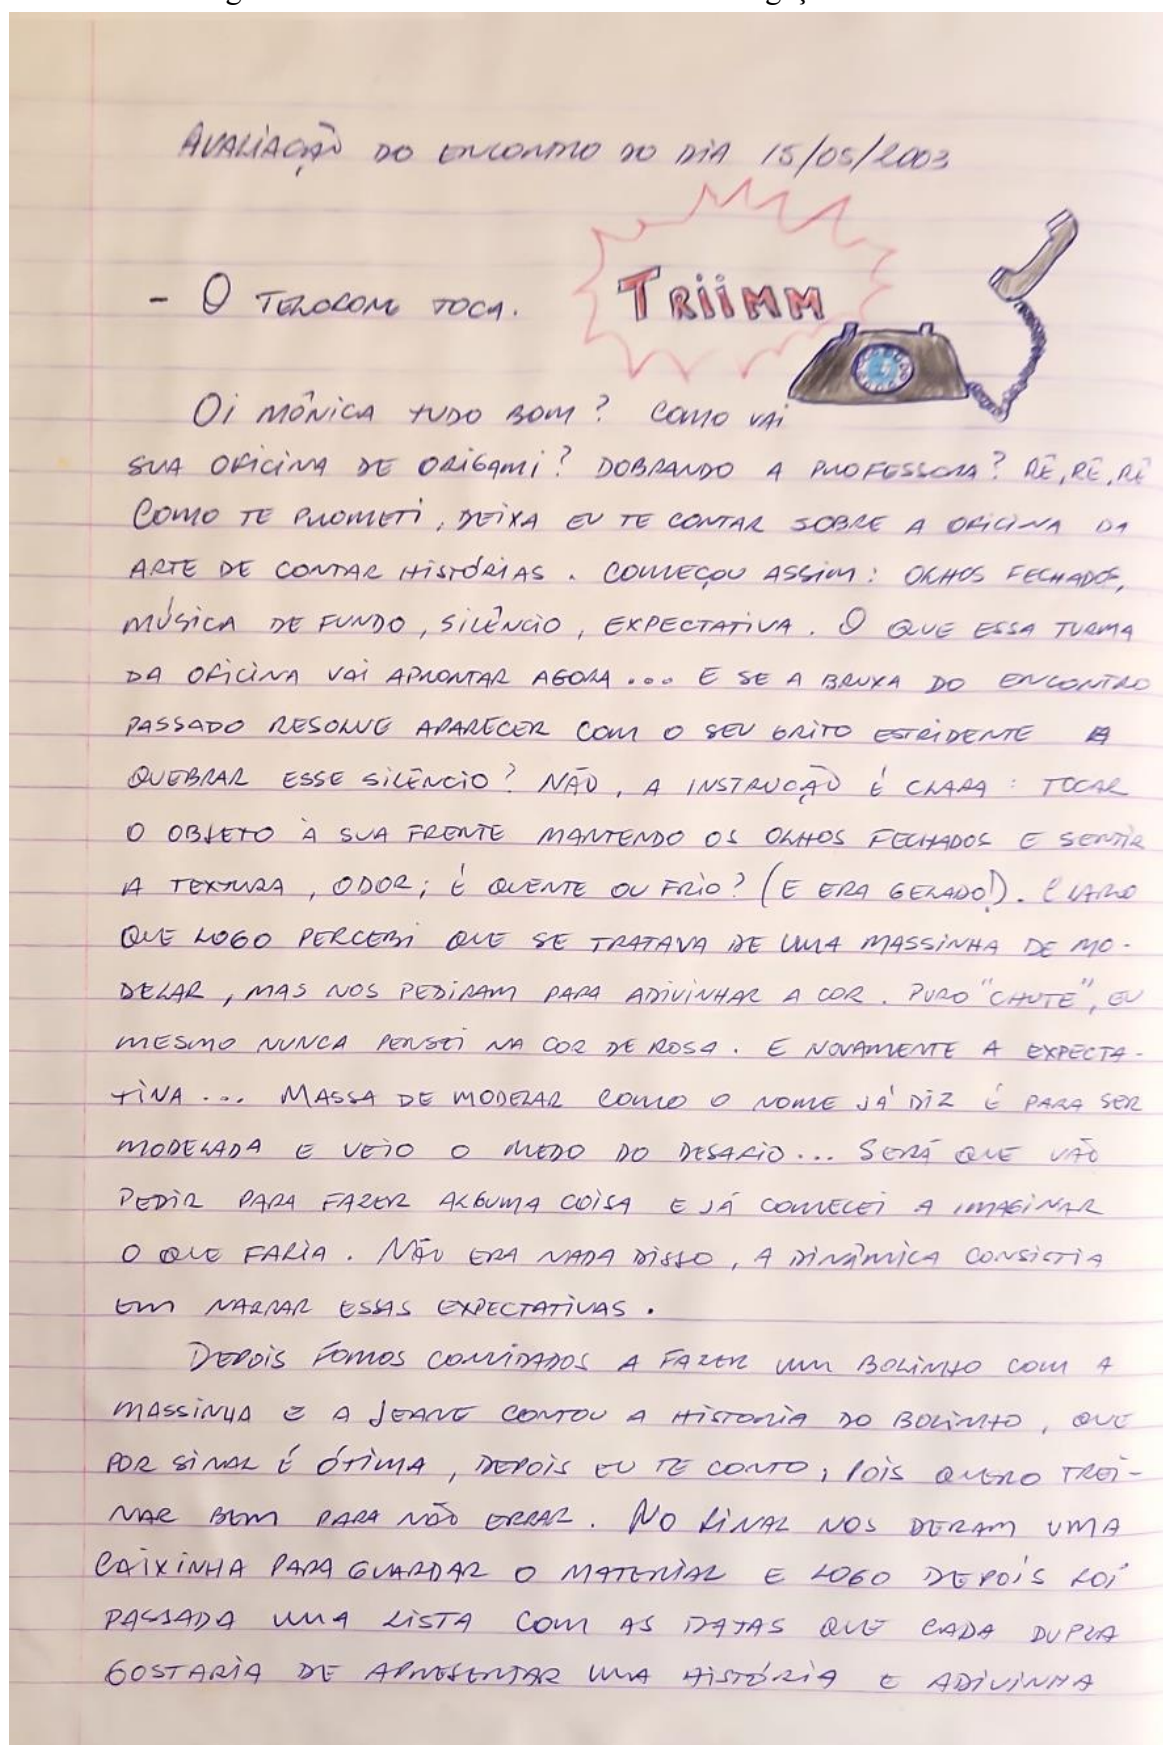 AVALIAÇÃO DO ENCONTRO DO DIA 15/05/2003
- O TELEFONE TOCA.
TRIIMM
OI MÔNICA TUDO BOM? COMO VAI
SUA OFICINA DE ORIGAMI? DOBRANDO A PROFESSORA? RÊ, RÊ, RÊ
COMO TE PROMETI, DEIXA EU TE CONTAR SOBRE A OFICINA DA
ARTE DE CONTAR HISTÓRIAS. COMEÇOU ASSIM: OLHOS FECHADOS,
MÚSICA DE FUNDO, SILÊNCIO, EXPECTATIVA. O QUE ESSA TURMA
DA OFICINA VAI APRONTAR AGORA... E SE A BRUXA DO ENCONTRO
PASSADO RESOLVE APARECER COM O SEU GRITO ESTRIDENTE A
QUEBRAR ESSE SILÊNCIO? NÃO, A INSTRUÇÃO É CLARA: TOCAR
O OBJETO À SUA FRENTE MANTENDO OS OLHOS FECHADOS E SENTIR
A TEXTURA, ODOR; É QUENTE OU FRIO? (E ERA GELADO!). CLARO
QUE LOGO PERCEBI QUE SE TRATAVA DE UMA MASSINHA DE MO-
DELAR, MAS NOS PEDIRAM PARA ADIVINHAR A COR. PURO "CHUTE", EU
MESMO NUNCA PENSEI NA COR DE ROSA. E NOVAMENTE A EXPECTA-
TIVA... MASSA DE MODELAR COMO O NOME JÁ DIZ É PARA SER
MODELADA E VEIO O MEDO DO DESAFIO... SERÁ QUE VÃO
PEDIR PARA FAZER ALGUMA COISA E JÁ COMECEI A IMAGINAR
O QUE FARIA. NÃO ERA NADA DISSO, A DINÂMICA CONSISTIA
EM NARRAR ESSAS EXPECTATIVAS.
DEPOIS FOMOS CONVIDADOS A FAZER UM BOLINHO COM A
MASSINHA E A JEANE CONTOU A HISTORIA DO BOLINHO, QUE
POR SINAL É ÓTIMA, DEPOIS EU TE CONTO, POIS QUERO TREI-
NAR BEM PARA NÃO ERRAR. NO FINAL NOS DERAM UMA
CAIXINHA PARA GUARDAR O MATERIAL E LOGO DEPOIS FOI
PASSADA UMA LISTA COM AS DATAS QUE CADA DUPLA
GOSTARIA DE APRESENTAR UMA HISTÓRIA E ADIVINHA